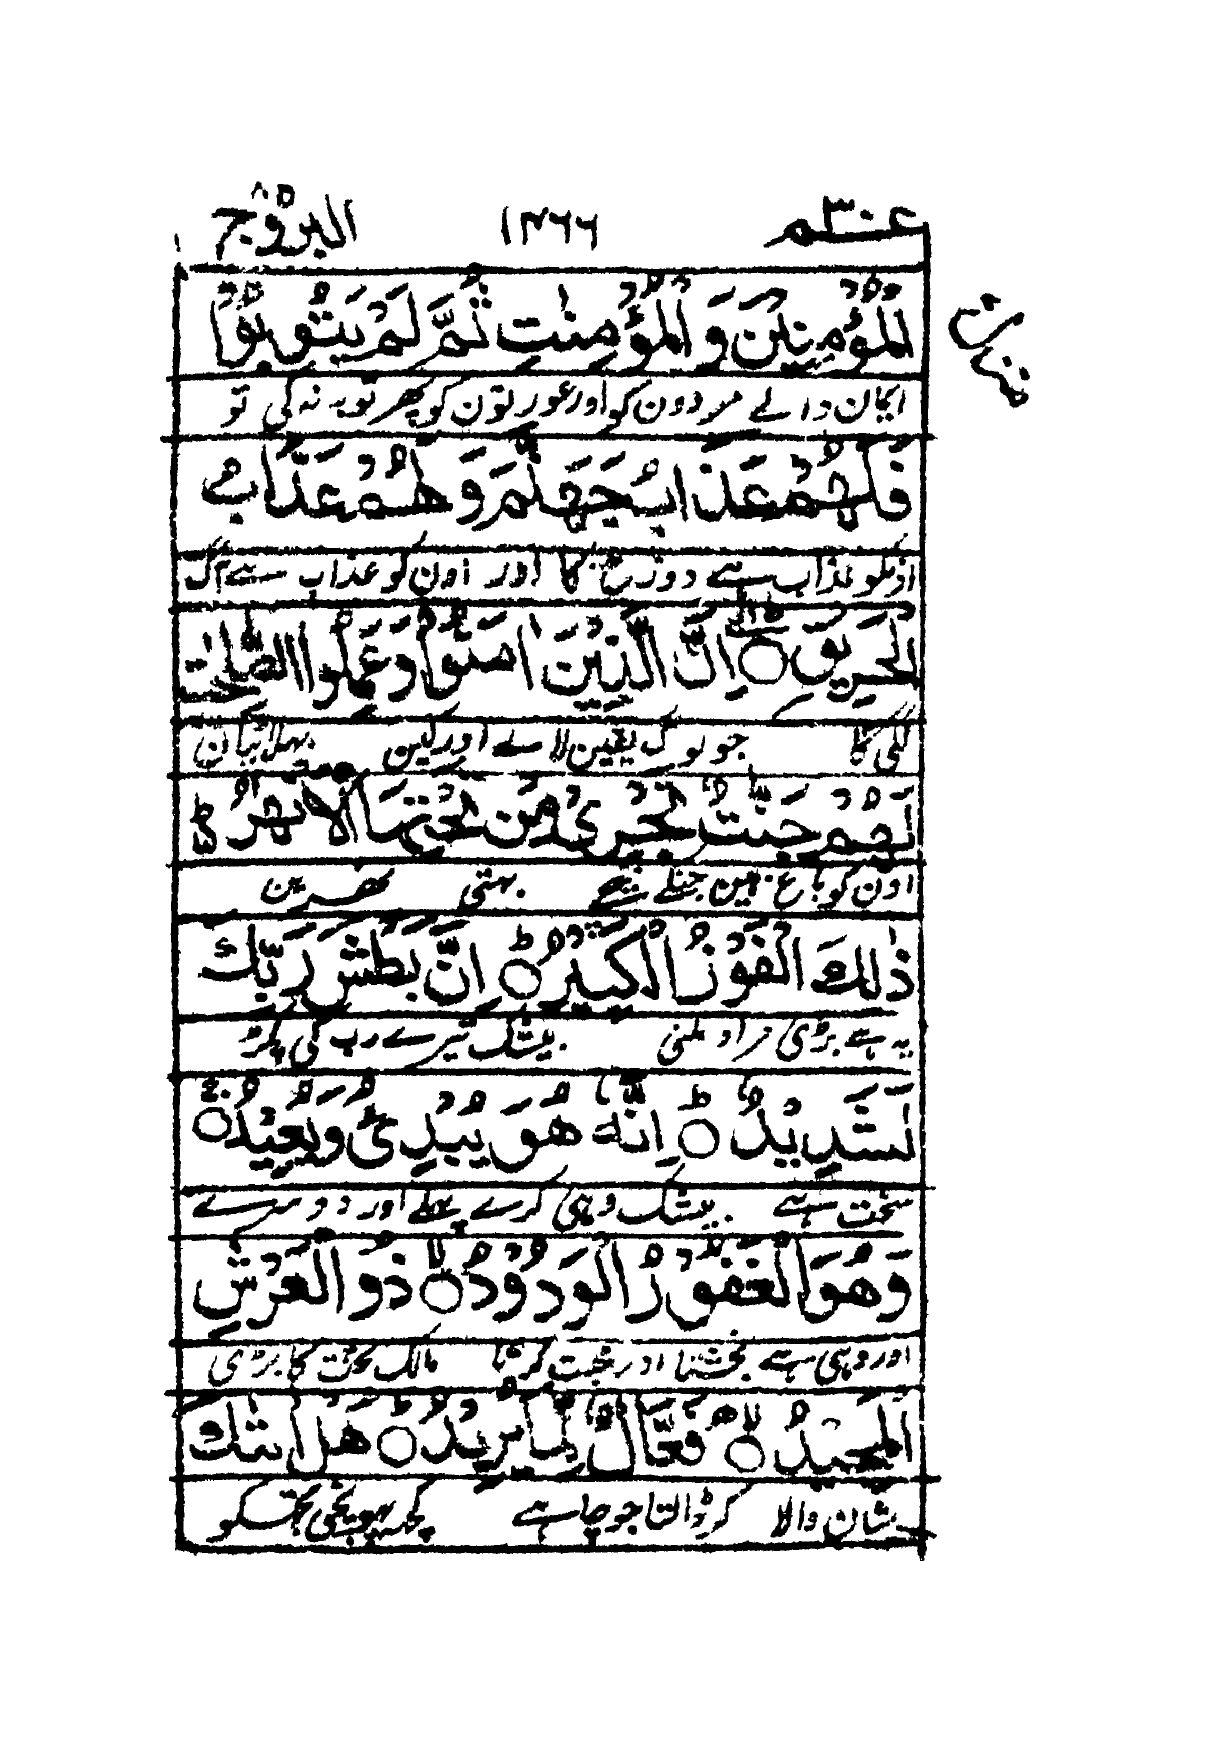 عم ٣٠ ١٢٦٦ البروج ٨٥
الْمُؤْمِنِيْنَ وَالْمُؤْمِنٰتِ ثُمَّ لَمْ يَتُوْبُوْا
ایمان والے مردون کو اور عورتون کو پھر توبہ نہ کی تو
فَلَهُمْ عَذَابُ جَهَنَّمَ وَلَهُمْ عَذَابُ
اونکو عذاب ہے دوزخ کا اور اون کو عذاب ہے آگ
الْحَرِيْقِ ○ اِنَّ الَّذِيْنَ اٰمَنُوْا وَعَمِلُوا الصّٰلِحٰتِ
لگی کا جو لوگ یقین لائے اور کین بھلائیان
لَهُمْ جَنّٰتٌ تَجْرِيْ مِنْ تَحْتِهَا الْاَنْهٰرُ ؕ
اون کو باغ ہین جنکے نیچے بہتی نہرین
ذٰلِكَ الْفَوْزُ الْكَبِيْرُ ○ اِنَّ بَطْشَ رَبِّكَ
یہ ہے بڑی مراد ملنی بیشک تیرے رب کی پکڑ
لَشَدِيْدٌ ○ اِنَّهٗ هُوَ يُبْدِئُ وَيُعِيْدُ ○
سخت ہے بیشک وہی کرے پہلے اور دوسرے
وَهُوَ الْغَفُوْرُ الْوَدُوْدُ ○ ذُو الْعَرْشِ
اور وہی ہے بخشتا اور محبت کرتا مالک تخت کا بڑی
الْمَجِيْدُ ○ فَعَّالٌ لِّمَا يُرِيْدُ ○ هَلْ اَتٰىكَ
شان والا کر ڈالتا جو چاہے کچھ پہونچی تجھکو